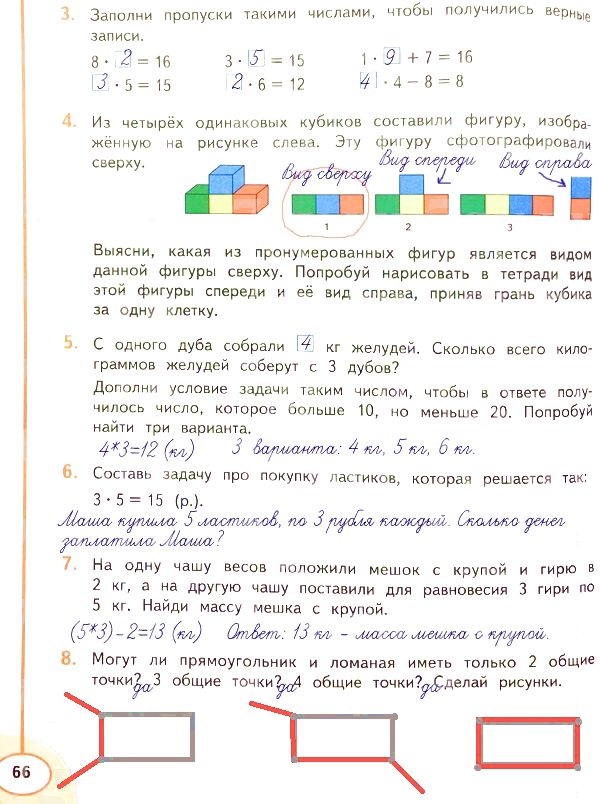 3. Заполни пропуски такими числами, чтобы получились верные
записи.
8 · 2 = 16 3 · 5 = 15 1 · 9 + 7 = 16
3 · 5 = 15 2 · 6 = 12 4 · 4 − 8 = 8
4. Из четырёх одинаковых кубиков составили фигуру, изобра-
жённую на рисунке слева. Эту фигуру сфотографировали
сверху.
Вид сверху Вид спереди Вид справа
1 2 3
Выясни, какая из пронумерованных фигур является видом
данной фигуры сверху. Попробуй нарисовать в тетради вид
этой фигуры спереди и её вид справа, приняв грань кубика
за одну клетку.
5. С одного дуба собрали 4 кг желудей. Сколько всего кило-
граммов желудей соберут с 3 дубов?
Дополни условие задачи таким числом, чтобы в ответе полу-
чилось число, которое больше 10, но меньше 20. Попробуй
найти три варианта.
4*3=12 (кг) 3 варианта: 4 кг, 5 кг, 6 кг.
6. Составь задачу про покупку ластиков, которая решается так:
3 · 5 = 15 (р.).
Маша купила 5 ластиков, по 3 рубля каждый. Сколько денег
заплатила Маша?
7. На одну чашу весов положили мешок с крупой и гирю в
2 кг, а на другую чашу поставили для равновесия 3 гири по
5 кг. Найди массу мешка с крупой.
(5*3)-2=13 (кг) Ответ: 13 кг - масса мешка с крупой.
8. Могут ли прямоугольник и ломаная иметь только 2 общие
точки? да 3 общие точки? да 4 общие точки? да Сделай рисунки.
66